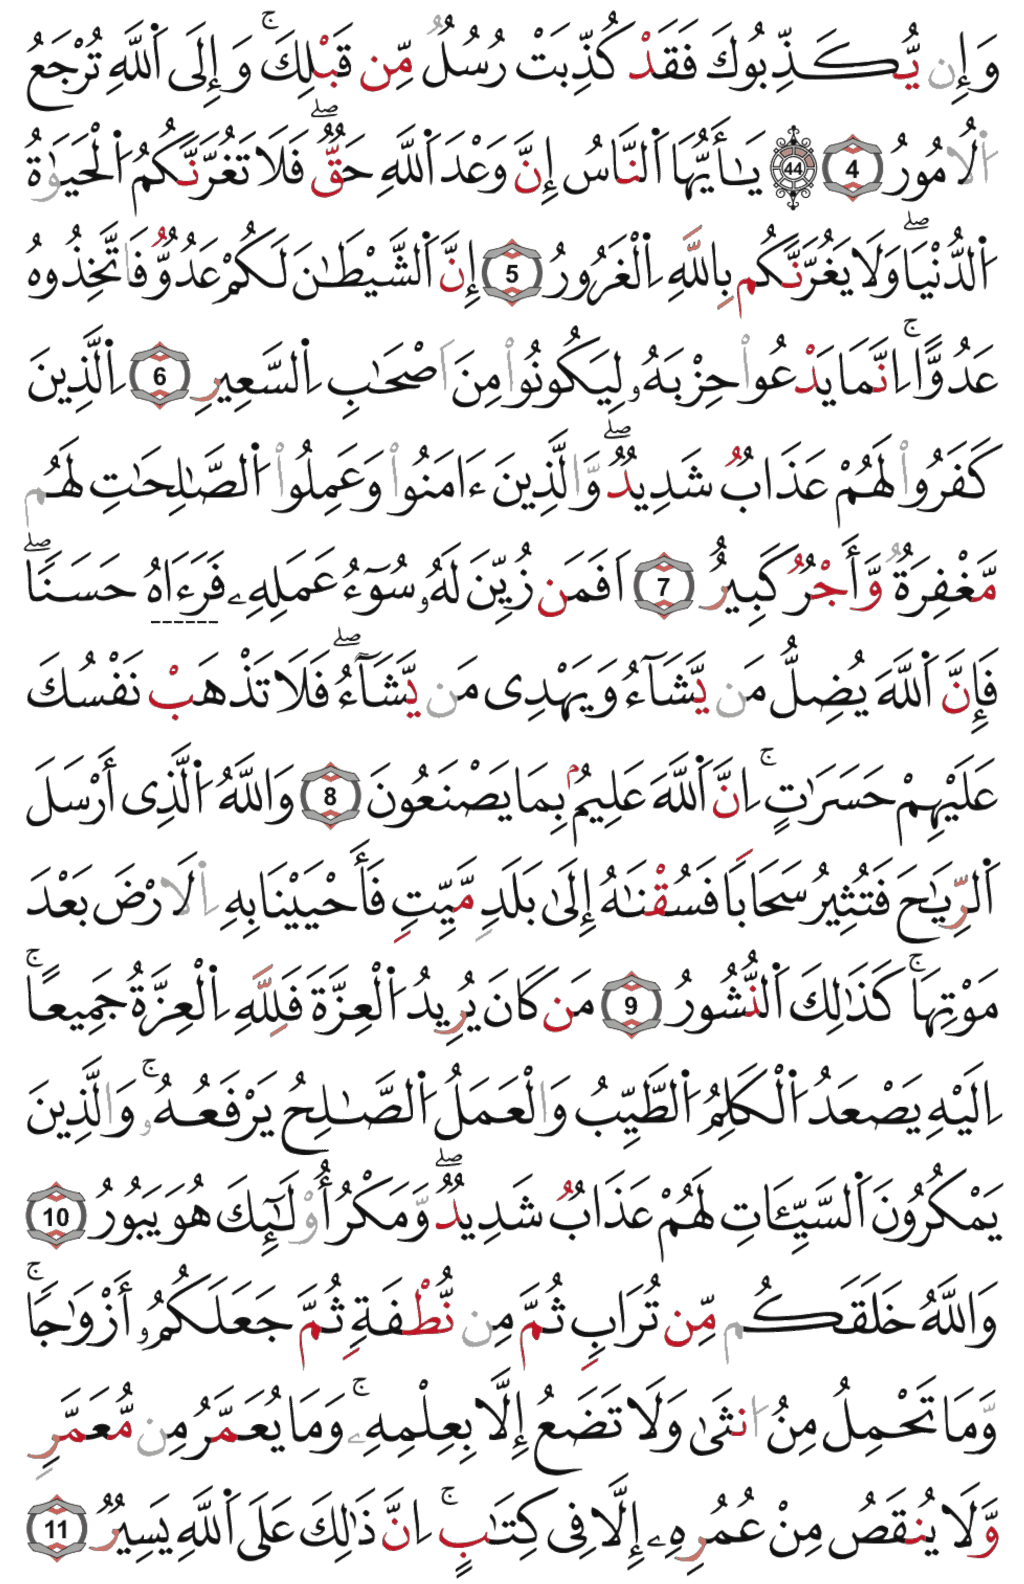 وَإِن يُّكَذِّبُوكَ فَقَدْ كُذِّبَتْ رُسُلٌ مِّن قَبْلِكَ ۚ وَإِلَى اَ۬للَّهِ تُرْجَعُ
اُ۬لَامُورُ 4 44 يَٰأَيُّهَا اَ۬لنَّاسُ إِنَّ وَعْدَ اَ۬للَّهِ حَقٌّ ۖ فَلَا تَغُرَّنَّكُمُ اُ۬لْحَيَوٰةُ
اُ۬لدُّنْيَا ۖ وَلَا يَغُرَّنَّكُم بِاللَّهِ اِ۬لْغَرُورُ 5 إِنَّ اَ۬لشَّيْطَٰنَ لَكُمْ عَدُوٌّ فَاتَّخِذُوهُ
عَدُوًّا ۚ اِنَّمَا يَدْعُواْ حِزْبَهُۥ لِيَكُونُواْ مِنَ اَصْحَٰبِ اِ۬لسَّعِيرِ 6 اِ۬لَّذِينَ
كَفَرُواْ لَهُمْ عَذَابٌ شَدِيدٌ ۖ وَّالَّذِينَ ءَامَنُواْ وَعَمِلُواْ اُ۬لصَّٰلِحَٰتِ لَهُم
مَّغْفِرَةٌ وَّأَجْرٌ كَبِيرٌ 7 اَفَمَن زُيِّنَ لَهُۥ سُوٓءُ عَمَلِهِۦ فَرَءَاهُ حَسَنًا ۖ
فَإِنَّ اَ۬للَّهَ يُضِلُّ مَن يَّشَآءُ وَيَهْدِى مَن يَّشَآءُ ۖ فَلَا تَذْهَبْ نَفْسُكَ
عَلَيْهِمْ حَسَرَٰتٍ ۚ اِنَّ اَ۬للَّهَ عَلِيمُۢ بِمَا يَصْنَعُونَ 8 وَاللَّهُ اُ۬لَّذِى أَرْسَلَ
اَ۬لرِّيَٰحَ فَتُثِيرُ سَحَابًا فَسُقْنَٰهُ إِلَىٰ بَلَدٍ مَّيِّتٍ فَأَحْيَيْنَا بِهِ اِ۬لَارْضَ بَعْدَ
مَوْتِهَا ۚ كَذَٰلِكَ اَ۬لنُّشُورُ 9 مَن كَانَ يُرِيدُ اُ۬لْعِزَّةَ فَلِلَّهِ اِ۬لْعِزَّةُ جَمِيعًا ۚ
اِلَيْهِ يَصْعَدُ اُ۬لْكَلِمُ اُ۬لطَّيِّبُ وَالْعَمَلُ اُ۬لصَّٰلِحُ يَرْفَعُهُۥ ۚ وَالَّذِينَ
يَمْكُرُونَ اَ۬لسَّيِّـَٔاتِ لَهُمْ عَذَابٌ شَدِيدٌ ۖ وَّمَكْرُ أُوْلَٰٓئِكَ هُوَ يَبُورُ 10
وَاللَّهُ خَلَقَكُم مِّن تُرَابٍ ثُمَّ مِن نُّطْفَةٍ ثُمَّ جَعَلَكُمُۥ أَزْوَٰجًا ۚ
وَّمَا تَحْمِلُ مِنُ ا۟نثَىٰ وَلَا تَضَعُ إِلَّا بِعِلْمِهِۦ ۚ وَمَا يُعَمَّرُ مِن مُّعَمَّرٍ
وَّلَا يُنقَصُ مِنْ عُمُرِهِۦ إِلَّا فِى كِتَٰبٍ ۚ اِنَّ ذَٰلِكَ عَلَى اَ۬للَّهِ يَسِيرٌ 11